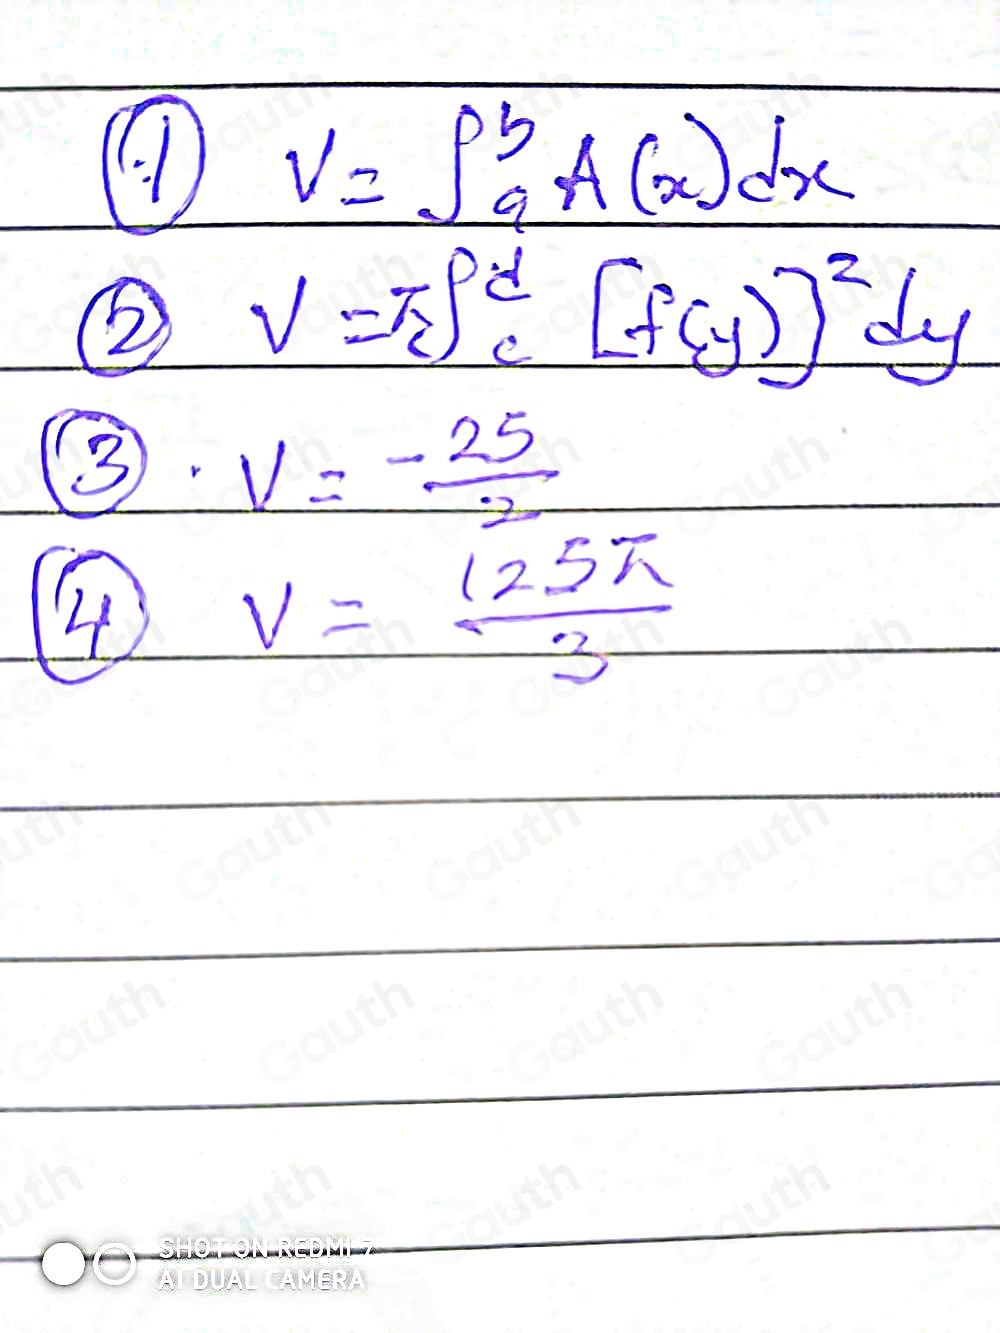 ① V = ∫_a^b A(x)dx
② V = π∫_c^d [f(y)]² dy
③ . V = -25/2
④ V = 125π/3
Gauth
SHOT ON REDMI 7
AI DUAL CAMERA